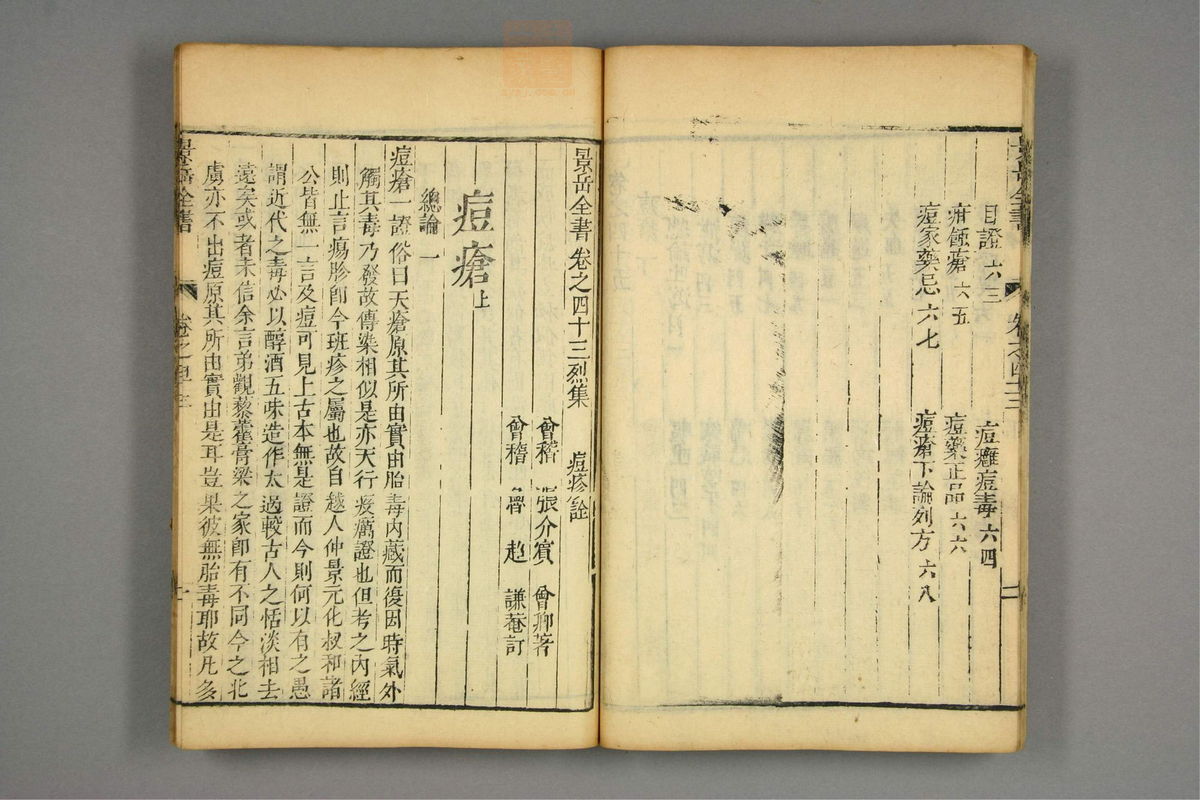 景岳全書
卷之四十三
二
目證六三
痘癰痘毒六四
疳蝕瘡六五
痘藥正品六六
痘家藥忌六七
痘瘡下論列方六八
景岳全書卷之四十三烈集 痘疹詮
會稽 張介賓 會卿著
會稽 魯超 謙菴訂
痘瘡上
總論一
痘瘡一證俗曰天瘡原其所由實由胎毒內藏而復因時氣外
觸其毒乃發故傳染相似是亦天行疫癘證也但考之內經
則止言瘍胗卽今斑疹之屬也故自越人仲景元化叔和諸
公皆無一言及痘可見上古本無是證而今則何以有之愚
謂近代之毒必以醇酒五味造作太過較古人之恬淡相去
遠矣或者未信余言弟觀藜藿膏梁之家卽有不同今之北
虜亦不出痘原其所由實由是耳豈果彼無胎毒耶故凡多
景岳全書
卷之四十三
一